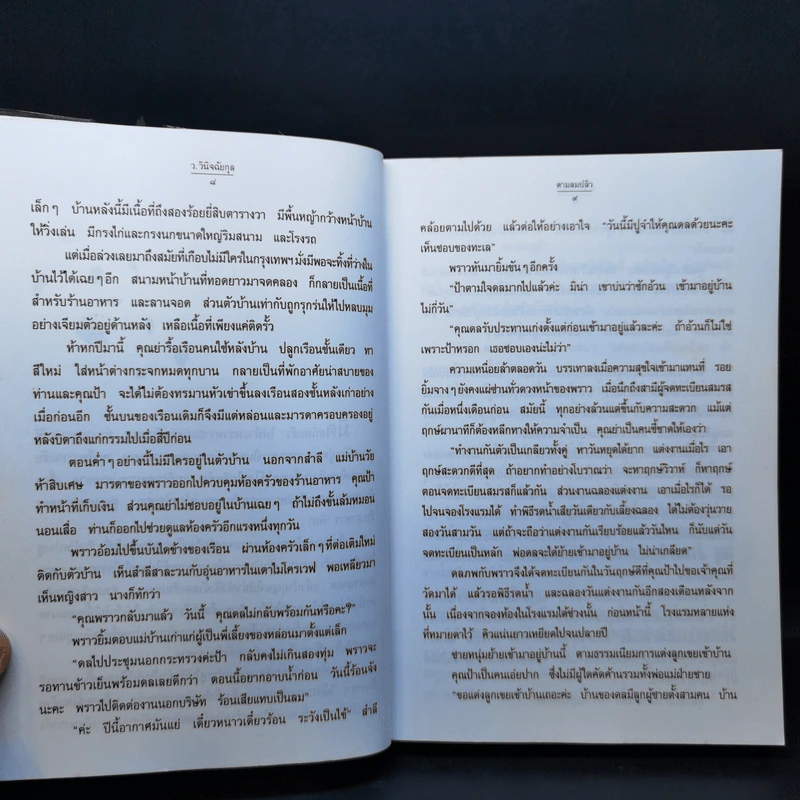 ว.วินิจฉัยกุล
๘
เล็กๆ บ้านหลังนี้มีเนื้อที่ถึงสองร้อยยี่สิบตารางวา มีพื้นหญ้ากว้างหน้าบ้าน
ให้วิ่งเล่น มีกรงไก่และกรงนกขนาดใหญ่ริมสนาม และโรงรถ
แต่เมื่อล่วงเลยมาถึงสมัยที่เกือบไม่มีใครในกรุงเทพฯมั่งมีพอจะทิ้งที่ว่างใน
บ้านไว้ได้เฉยๆอีก สนามหน้าบ้านที่ทอดยาวมาจดคลอง ก็กลายเป็นเนื้อที่
สำหรับร้านอาหาร และลานจอด ส่วนตัวบ้านเท่ากับถูกรุกร่นให้ไปหลบมุม
อย่างเจียมตัวอยู่ด้านหลัง เหลือเนื้อที่เพียงแค่ติดรั้ว
ห้าหกปีมานี้ คุณย่ารื้อเรือนคนใช้หลังบ้าน ปลูกเรือนชั้นเดียว ทา
สีใหม่ ใส่หน้าต่างกระจกหมดทุกบาน กลายเป็นที่พักอาศัยน่าสบายของ
ท่านและคุณป้า จะได้ไม่ต้องทรมานหัวเข่าขึ้นลงเรือนสองชั้นหลังเก่าอย่าง
เมื่อก่อนอีก ชั้นบนของเรือนเดิมก็จึงมีแต่หล่อนและมารดาครอบครองอยู่
หลังบิดาถึงแก่กรรมไปเมื่อสี่ปีก่อน
ตอนค่ำๆอย่างนี้ไม่มีใครอยู่ในตัวบ้าน นอกจากสำลี แม่บ้านวัย
ห้าสิบเศษ มารดาของพราวออกไปควบคุมห้องครัวของร้านอาหาร คุณป้า
ทำหน้าที่เก็บเงิน ส่วนคุณย่าไม่ชอบอยู่ในบ้านเฉยๆ ถ้าไม่ถึงขั้นล้มหมอน
นอนเสื่อ ท่านก็ออกไปช่วยดูแลห้องครัวอีกแรงหนึ่งทุกวัน
พราวอ้อมไปขึ้นบันไดข้างของเรือน ผ่านห้องครัวเล็กๆที่ต่อเติมใหม่
ติดกับตัวบ้าน เห็นสำลีสาละวนกับอุ่นอาหารในเตาไมโครเวฟ พอเหลียวมา
เห็นหญิงสาว นางก็ทักว่า
“คุณพราวกลับมาแล้ว วันนี้ คุณดลไม่กลับพร้อมกันหรือคะ?”
พราวยิ้มตอบแม่บ้านเก่าแก่ผู้เป็นพี่เลี้ยงของหล่อนมาตั้งแต่เล็ก
“ดลไปประชุมนอกกระทรวงค่ะป้า กลับคงไม่เกินสองทุ่ม พราวจะ
รอทานข้าวเย็นพร้อมดลเลยดีกว่า ตอนนี้อยากอาบน้ำก่อน วันนี้ร้อนจัง
นะคะ พราวไปติดต่องานนอกบริษัท ร้อนเสียแทบเป็นลม”
“ค่ะ ปีนี้อากาศมันแย่ เดี๋ยวหนาวเดี๋ยวร้อน ระวังเป็นไข้” สำลี
ตามลมปลิว
๙
คล้อยตามไปด้วย แล้วต่อให้อย่างเอาใจ “วันนี้มีปูจ๋าให้คุณดลด้วยนะคะ
เห็นชอบของทะเล”
พราวหันมายิ้มขันๆอีกครั้ง
“ป้าตามใจดลมากไปแล้วค่ะ มิน่า เขาบ่นว่าชักอ้วน เข้ามาอยู่บ้าน
ไม่กี่วัน”
“คุณดลรับประทานเก่งตั้งแต่ก่อนเข้ามาอยู่แล้วละค่ะ ถ้าอ้วนก็ไม่ใช่
เพราะป้าหรอก เธอชอบเองน่ะไม่ว่า”
ความเหนื่อยล้าตลอดวัน บรรเทาลงเมื่อความสุขใจเข้ามาแทนที่ รอย
ยิ้มจางๆยังคงแผ่ซ่านทั่วดวงหน้าของพราว เมื่อนึกถึงสามีผู้จดทะเบียนสมรส
กันเมื่อหนึ่งเดือนก่อน สมัยนี้ ทุกอย่างล้วนแต่ขึ้นกับความสะดวก แม้แต่
ฤกษ์ผานาทีก็ต้องหลีกทางให้ความจำเป็น คุณย่าเป็นคนชี้ขาดให้เองว่า
“ทำงานกันตัวเป็นเกลียวทั้งคู่ หาวันหยุดได้ยาก แต่งงานเมื่อไร เอา
ฤกษ์สะดวกดีที่สุด ถ้าอยากทำอย่างโบราณว่า จะหาฤกษ์วิวาห์ ก็หาฤกษ์
ตอนจดทะเบียนสมรสก็แล้วกัน ส่วนงานฉลองแต่งงาน เอาเมื่อไรก็ได้ รอ
ไปจนจองโรงแรมได้ ทำพิธีรดน้ำเสียวันเดียวกับเลี้ยงฉลอง ได้ไม่ต้องวุ่นวาย
สองวันสามวัน แต่ถ้าจะถือว่าแต่งงานกันเรียบร้อยแล้ววันไหน ก็นับแต่วัน
จดทะเบียนเป็นหลัก พ่อดลจะได้ย้ายเข้ามาอยู่บ้าน ไม่น่าเกลียด”
ดลภพกับพราวจึงได้จดทะเบียนกันในวันฤกษ์ดีที่คุณป้าไปขอเจ้าคุณที่
วัดมาได้ แล้วรอพิธีรดน้ำ และฉลองวันแต่งงานกันอีกสองเดือนหลังจาก
นั้น เนื่องจากจองห้องในโรงแรมได้ช่วงนั้น ก่อนหน้านี้ โรงแรมหลายแห่ง
ที่หมายตาไว้ คิวแน่นยาวเหยียดไปจนปลายปี
ชายหนุ่มย้ายเข้ามาอยู่บ้านนี้ ตามธรรมเนียมการแต่งลูกเขยเข้าบ้าน
คุณป้าเป็นคนเอ่ยปาก ซึ่งไม่มีผู้ใดคัดค้านรวมทั้งพ่อแม่ฝ่ายชาย
“ขอแต่งลูกเขยเข้าบ้านเถอะค่ะ บ้านของดลมีลูกผู้ชายตั้งสามคน บ้าน